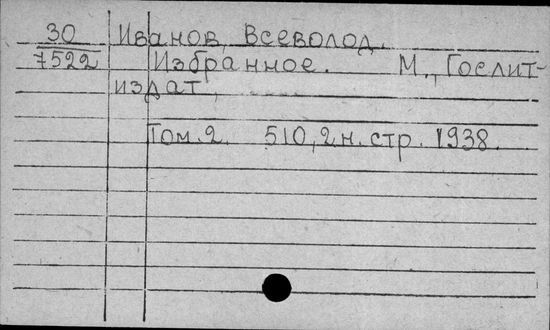 30 Иванов, Всеволод.
7522 Избранное. М., Гослит-
издат,
Том. 2. 510, 2 н. стр. 1938.